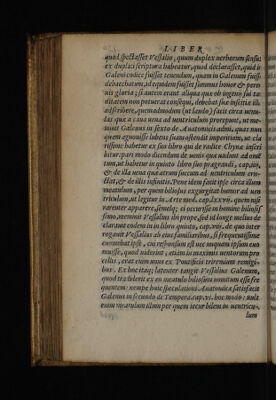 LIBER
quod spectasset Vessalius, quum duplex verborum sensus
ex duplici scriptura habeatur, quod declarasset, quod in
Galeni codice fuisset tenendum, quam in Galenum fuisse
debacchatum, id equidem fuisset summi honor & peren
nis gloria; si autem erant aliqua quæ ob ingenii sui
ditatem non poterat consequi, debebat suæ inscitiæ illa
adscribere, quemadmodum (ut laudo) facit circa venu-
las quæ a cava vena ad ventriculum prorepunt, ut mo-
nuit Galenus in sexto de Anatomicis admi, quas non
quem agnovisse lubens suam ostendit imperitiam, ut cla
rissime habetur ex suo libro qui de radice Chynæ inscri
bitur. pari modo dicendum de venis quæ unidem ad ossi
sunt, ut habetur in quinto libro suo pragrandi, cap,
& de illa vena quæ atrum succum ad ventriculum eru-
ctat, & de illis instantis. Pene idem facit ipse circa illum
meatulum, per quem biliosus exigurgitat humor ad ven
triculum, ut legitur in Arte med. cap. lxxvii, quem visi
narenter apparere, somelq; ei occurrisse in homine biliosis
simo, meminit Vessalius ibi prope, sed id longe melius de
clarant eodem in in libro quinto, cap, viii, de quo inter
rogavit Vessalius ab eius familiaribus, si frequentissime
evomebat ipse, cui responsum est nec unquam ipsum evo
muisse, quod viderint, etiam in maximis ventorum pro
cellis, erat enim unus ex Pontificis triremium remigi-
bus. Ex hoc itaq; latenter tangit Vessalius Galenum,
quod tradiderit ex eo meatulo biliosum vomitum esse fre
quentem: nempe huic speculationi Anatomicæ satisfacit
Galenus in secundo de Tempera. cap. vi. hoc modo; sunt
enim meatulum illum per quem iecur bilem in ventricu-
lum